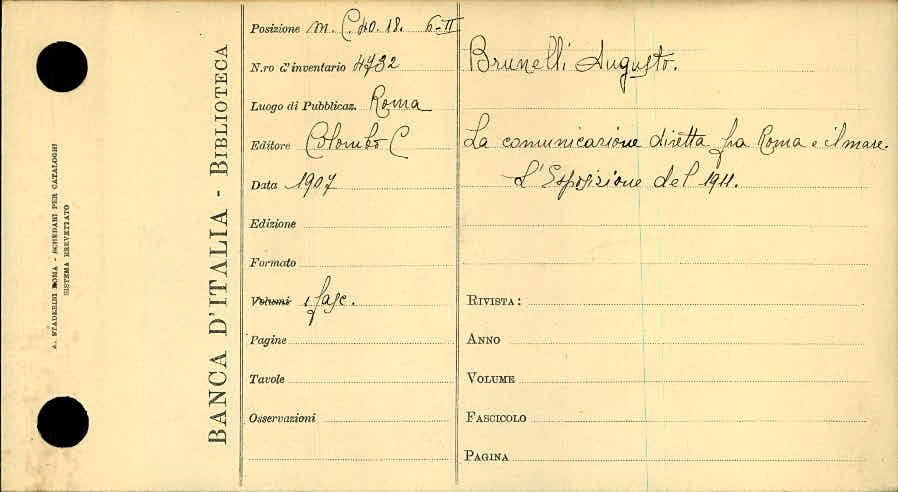 A. STADERINI ROMA - SCHEDARI PER CATALOGHI
SISTEMA BREVETTATO
BANCA D'ITALIA - BIBLIOTECA
Posizione M. C. 40. 18. 6-II
N.ro d'inventario 4732
Luogo di Pubblicaz. Roma
Editore Colombo C
Data 1907
Edizione
Formato
Volumi 1 fasc.
Pagine
Tavole
Osservazioni
Brunelli Augusto.
La comunicazione diretta fra Roma e il mare.
L'Esposizione del 1911.
RIVISTA:
ANNO
VOLUME
FASCICOLO
PAGINA